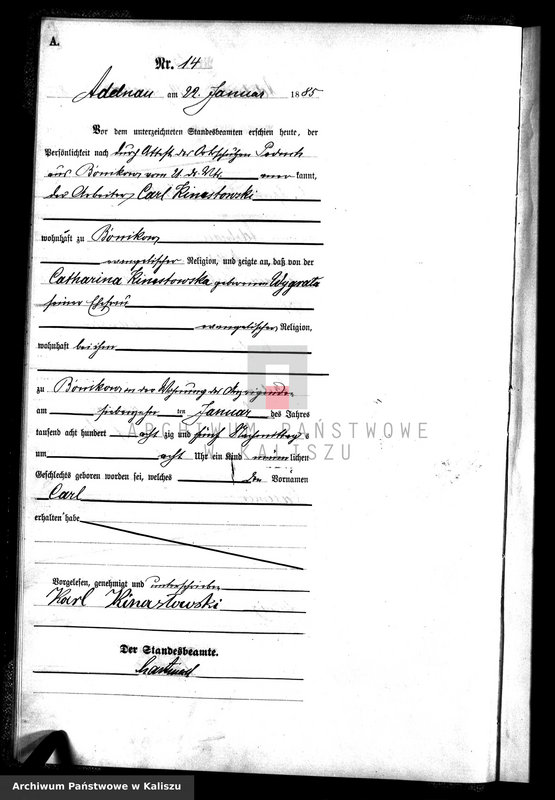 A.
Nr. 14
Adelnau am 22. Januar 1885
Vor dem unterzeichneten Standesbeamten erschien heute, der
Persönlichkeit nach durch Attest des Ortsschulzen
aus Bönikow vom 21 ds. Mts. kannt,
der Arbeiter Carl Kinastowski
wohnhaft zu Bönikow
evangelischer Religion, und zeigte an, daß von der
Catharina Kinastowska geborenen Wygralla
seiner Ehefrau
evangelischer Religion,
wohnhaft bei ihm
zu Bönikow in der Wohnung des Anzeigenden
am siebenzehn ten Januar des Jahres
tausend acht hundert acht zig und fünf Nachmittags
um acht Uhr ein Kind männlichen
Geschlechts geboren worden sei, welches den Vornamen
Carl
erhalten habe
Vorgelesen, genehmigt und unterschrieben
Karl Kinastowski
Der Standesbeamte.
ARCHIWUM PAŃSTWOWE
W KALISZU
Archiwum Państwowe w Kaliszu